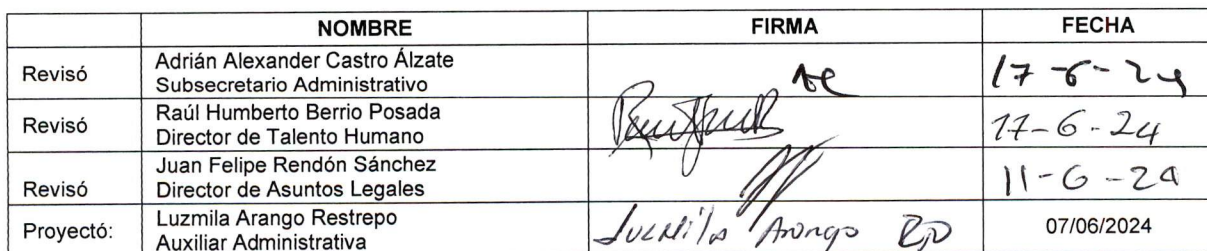 NOMBRE FIRMA FECHA
Revisó Adrián Alexander Castro Álzate
Subsecretario Administrativo 17-6-24
Revisó Raúl Humberto Berrio Posada
Director de Talento Humano 17-6-24
Revisó Juan Felipe Rendón Sánchez
Director de Asuntos Legales 11-6-24
Proyectó: Luzmila Arango Restrepo
Auxiliar Administrativa Luzmila Arango 07/06/2024